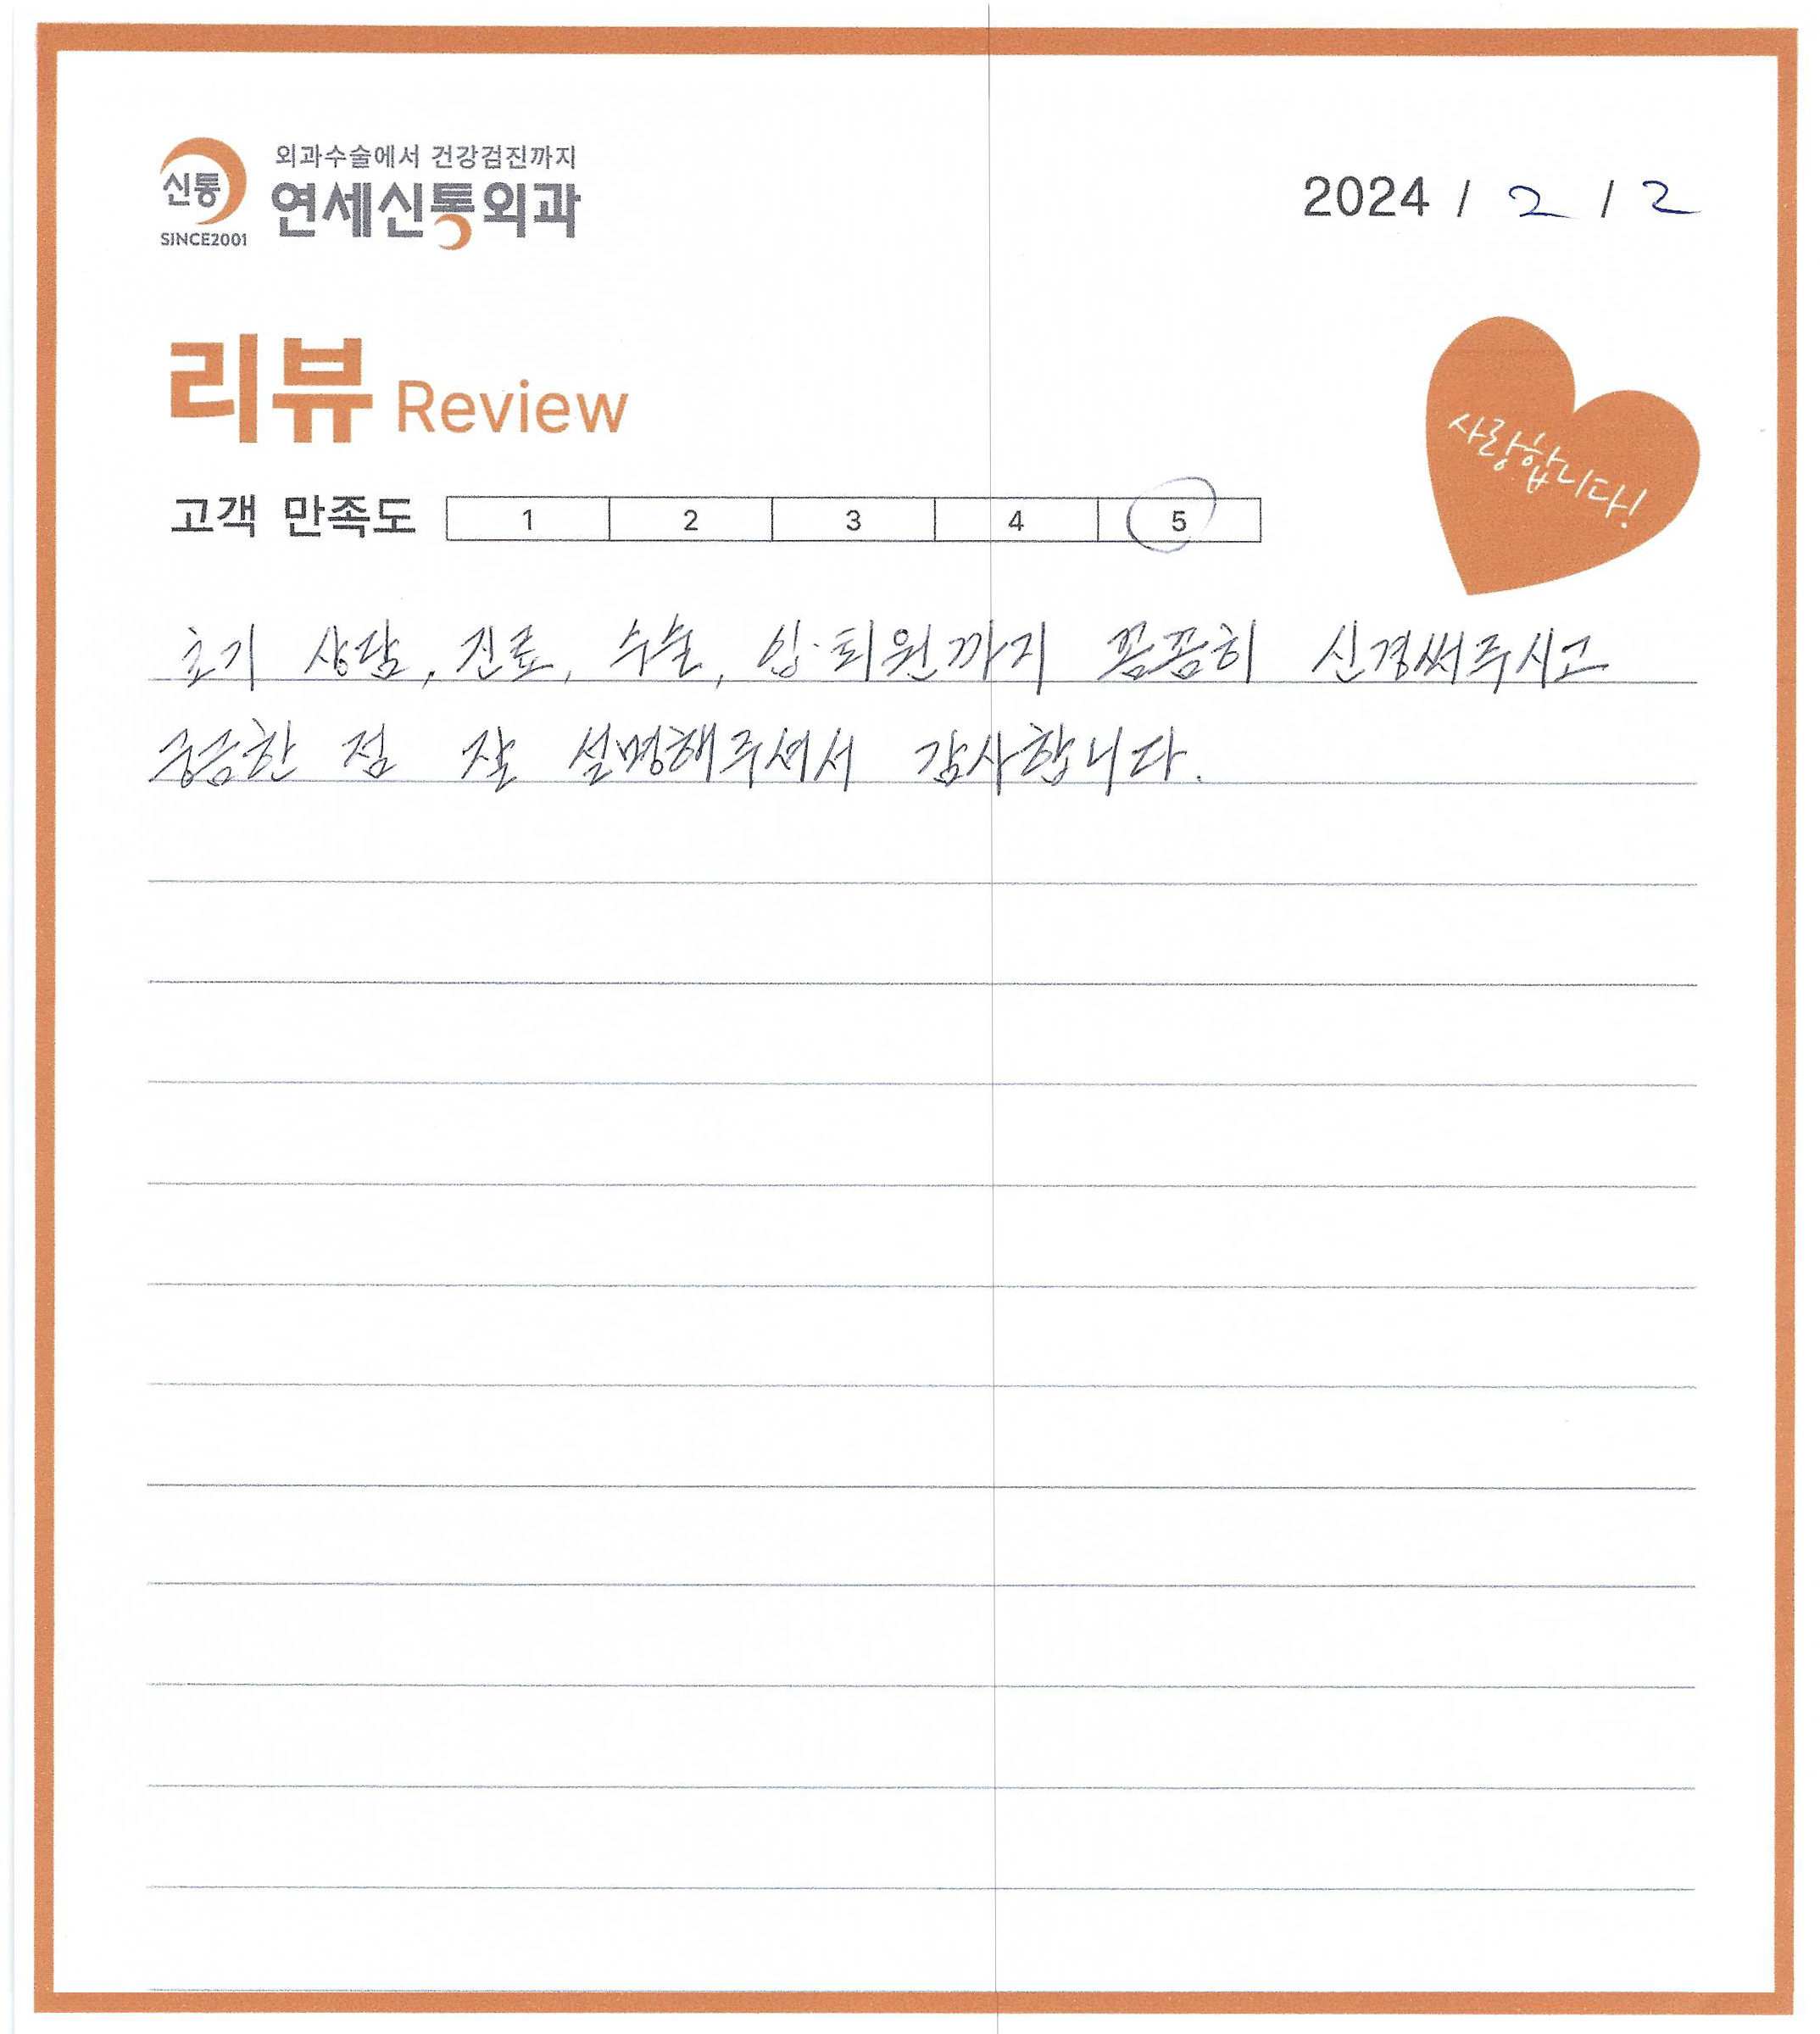 신통
SINCE2001
외과수술에서 건강검진까지
연세신통외과
2024 / 2 / 2
리뷰 Review
사랑합니다!
고객 만족도 1 2 3 4 5
초기 상담, 진료, 수술, 입·퇴원까지 꼼꼼히 신경써주시고
궁금한 점 잘 설명해주셔서 감사합니다.